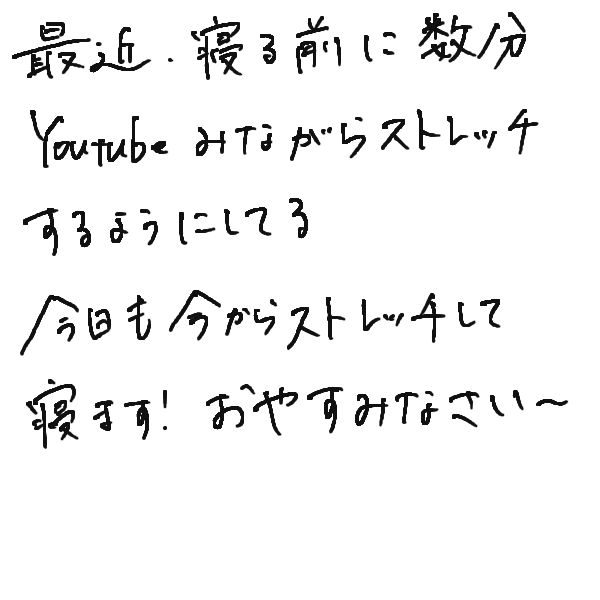 最近、寝る前に数分
Youtubeみながらストレッチ
するようにしてる
今日も今からストレッチして
寝ます! おやすみなさい〜